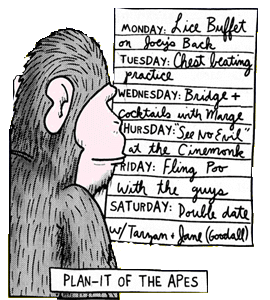 MONDAY: Lice Buffet
on Joey's Back
TUESDAY: Chest beating
practice
WEDNESDAY: Bridge +
cocktails with Marge
THURSDAY: "See No Evil"
at the Cinemonk
FRIDAY: Fling Poo
with the guys
SATURDAY: Double date
w/ Tarzan + Jane (Goodall)
PLAN-IT OF THE APES